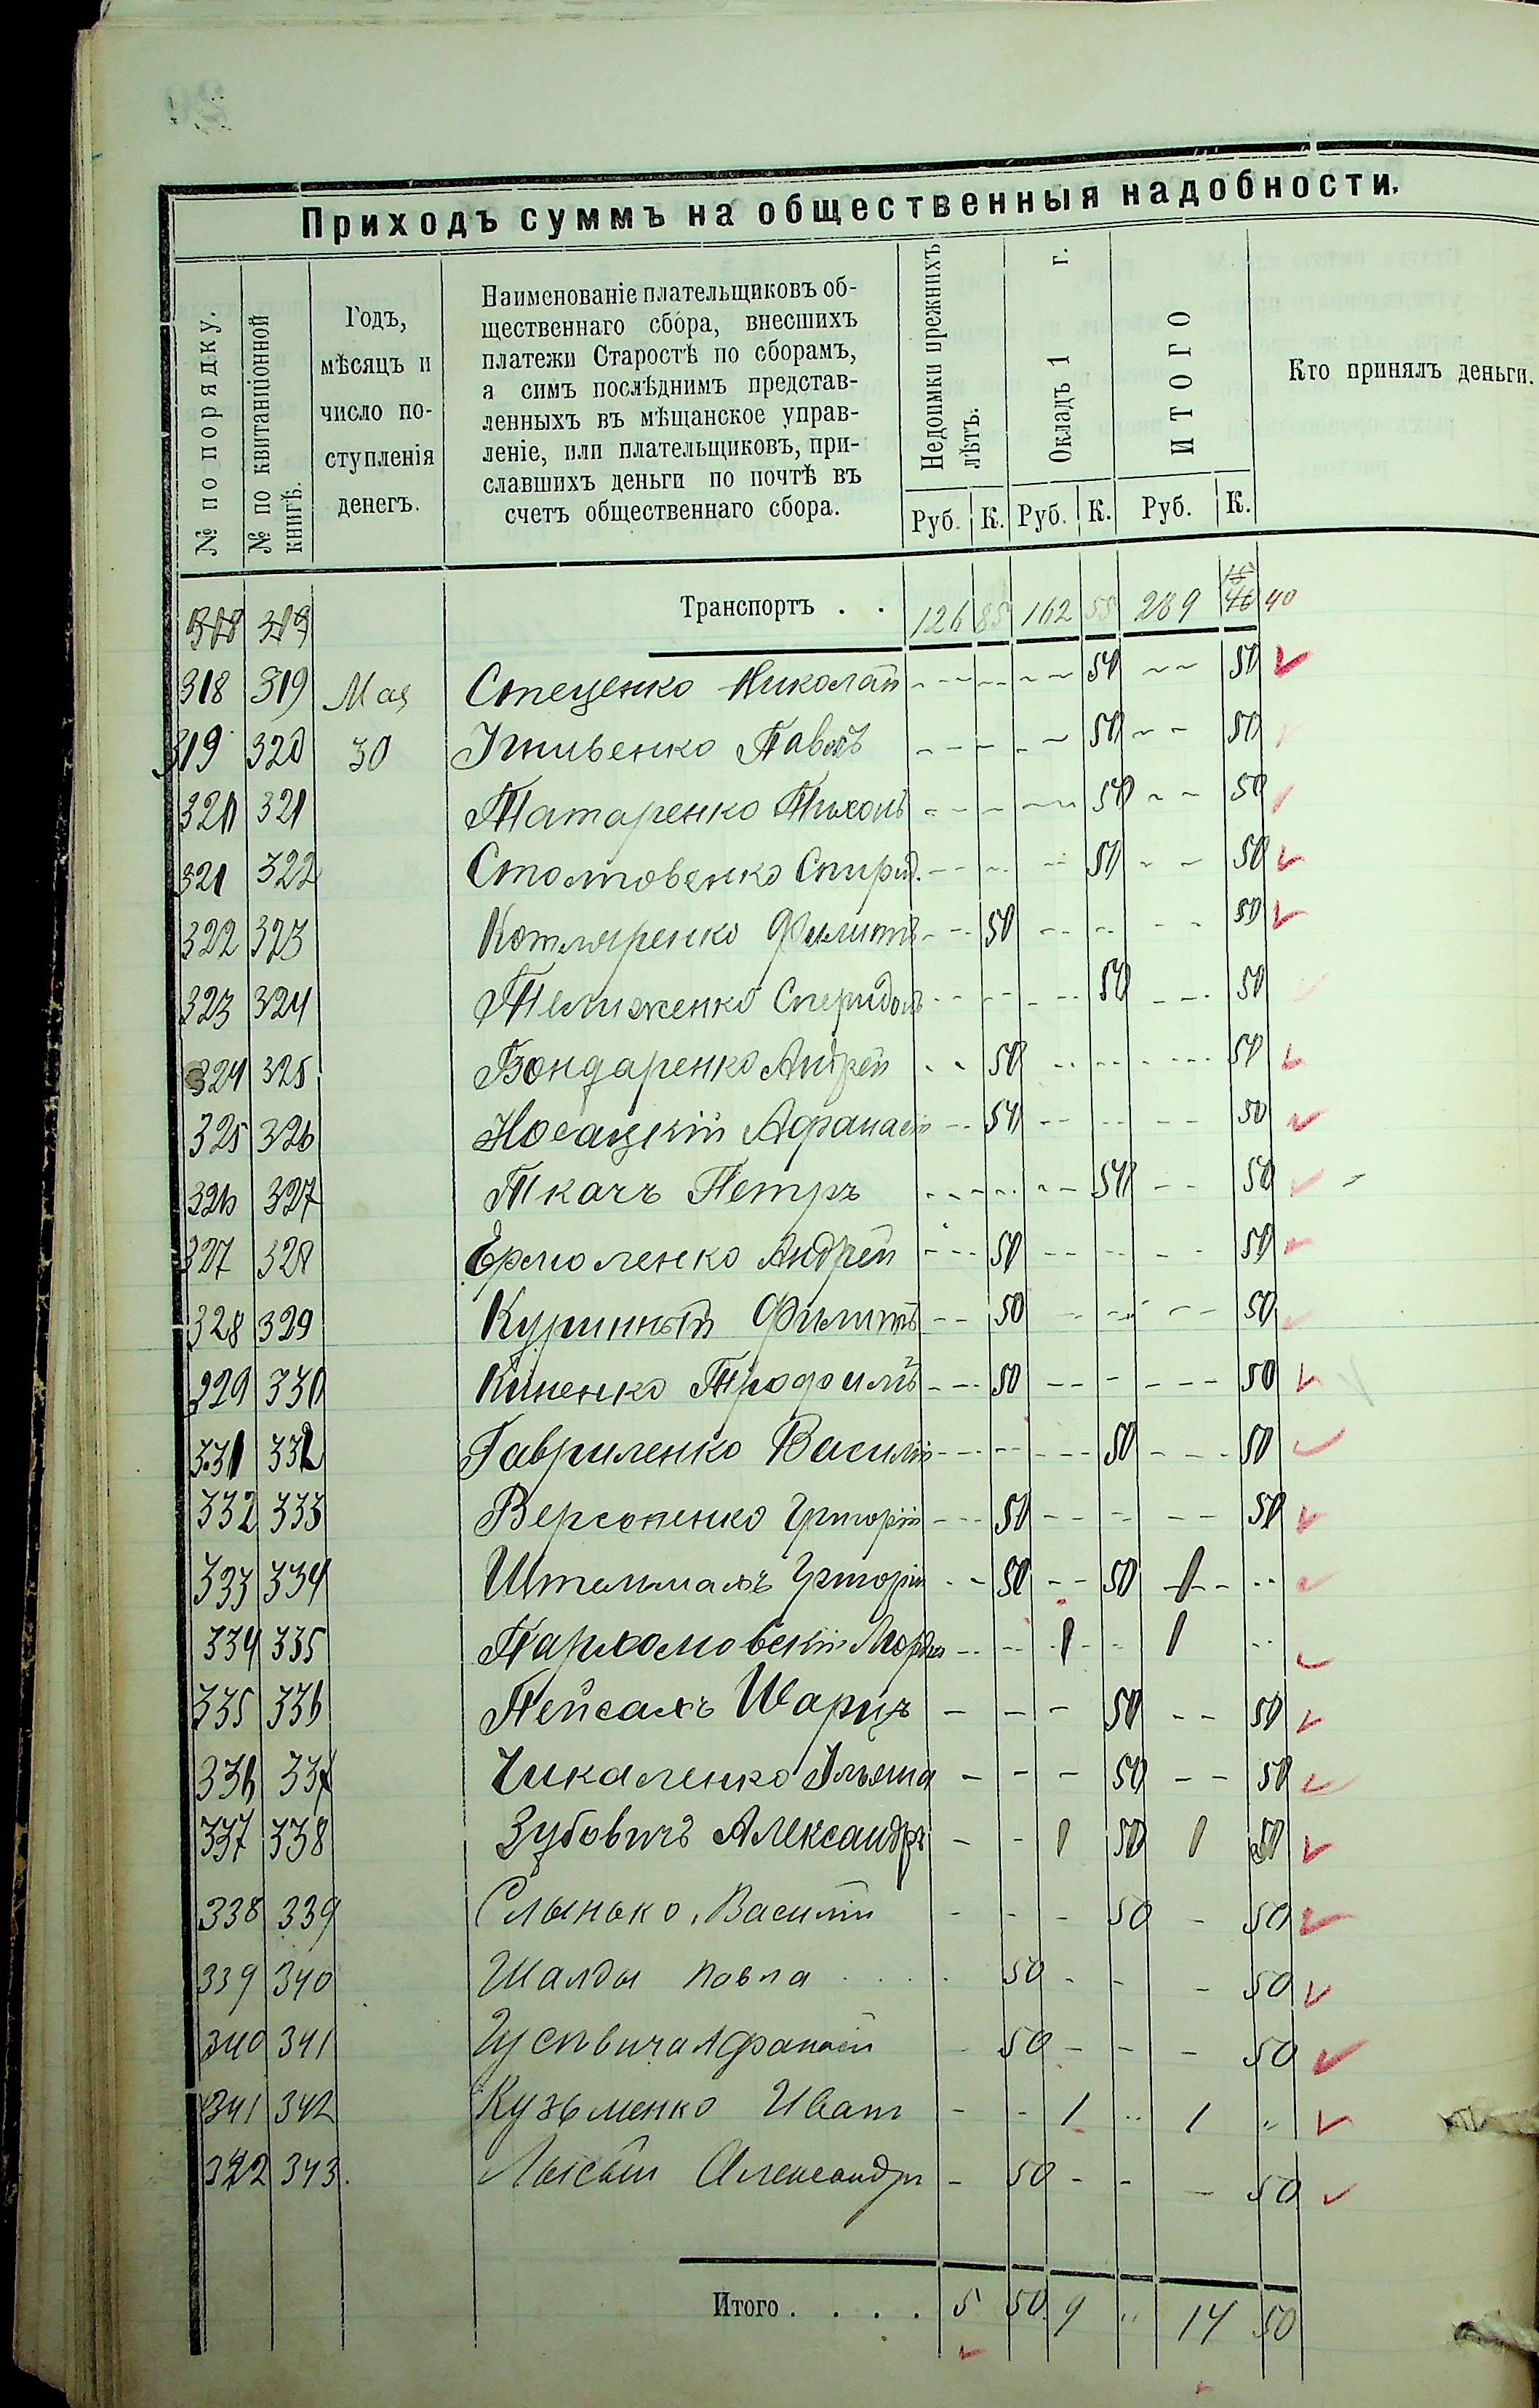 Приходъ суммъ на общественныя надобности.
№ по порядку.
№ по квитанціонной книгѣ.
Годъ,
мѣсяцъ и
число по-
ступленія
денегъ.
Наименованіе плательщиковъ об-
щественнаго сбора, внесшихъ
платежи Старостѣ по сборамъ,
а симъ послѣднимъ представ-
ленныхъ въ мѣщанское управ-
леніе, или плательщиковъ, при-
славшихъ деньги по почтѣ въ
счетъ общественнаго сбора.
Недоимки прежнихъ лѣтъ.
Окладъ 1 г.
ИТОГО
Кто принялъ деньги.
Руб. К. Руб. К. Руб. К.
Транспортъ . . 126 85 162 55 289 40
318 319 Мая Стеценко Николай 50 50
319 320 30 Павелъ 50 50
320 321 Татаренко Тихонъ 50 50
321 322 Спирид. 50 50
322 323 Котляренко Филиппъ 50 50
323 324 Спиридонъ 50 50
324 325 Бондаренко Андрей 50 50
325 326 Носацкій Афанасій 50 50
326 327 Ткачъ Петръ 50 50
327 328 Ермоленко Андрей 50 50
328 329 Куринный Филиппъ 50 50
329 330 Киненко Трофимъ 50 50
331 332 Гавриленко Василій 50 50
332 333 Григорій 50 50
333 334 Штельмахъ Григорій 50 50 1
334 335 Пархомовскій 1 1
335 336 Пейсахъ Шарцъ 50 50
336 337 Чикаленко 50 50
337 338 Зубовичъ Александръ 1 50 1 50
338 339 Слынько Василій 50 50
339 340 Шалды Павла 50 50
340 341 Афанасій 50 50
341 342 Кузьменко Иванъ 1 1
342 343. Лысый Александръ 50 50
Итого . . . . 5 50 9 " 14 50